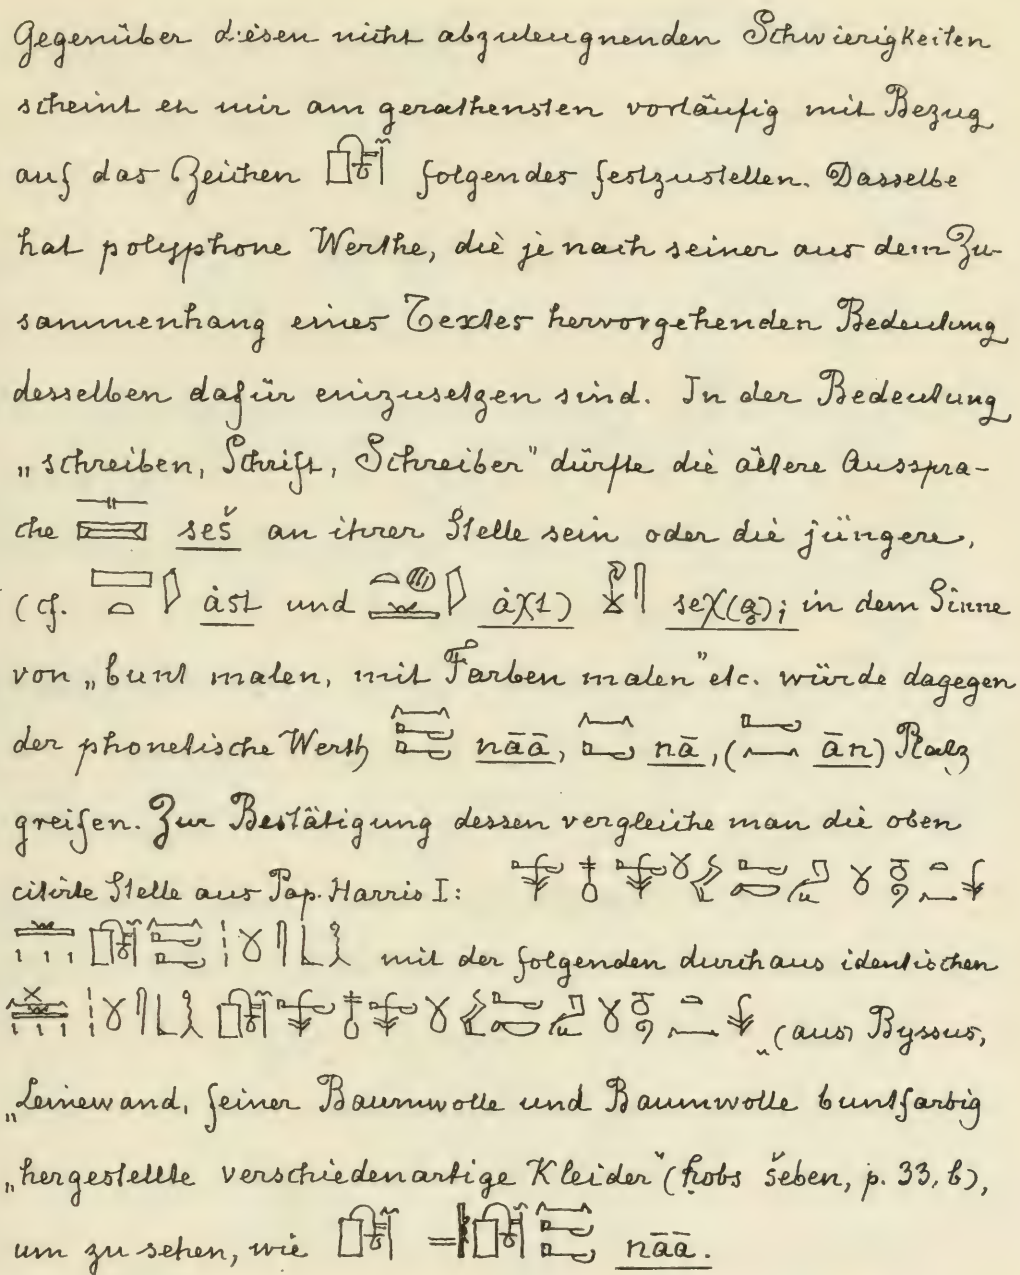 Gegenüber diesen nicht abzuleugnenden Schwierigkeiten
scheint es mir am gerathensten vorläufig mit Bezug
auf das Zeichen folgendes festzustellen. Dasselbe
hat polyphone Werthe, die je nach seiner aus dem Zu-
sammenhang eines Textes hervorgehenden Bedeutung
desselben dafür einzusetzen sind. In der Bedeutung
„schreiben, Schrift, Schreiber" dürfte die ältere Ausspra-
che seš an ihrer Stelle sein oder die jüngere,
(cf. àst und àχt) seχ(a); in dem Sinne
von „bunt malen, mit Farben malen" etc. würde dagegen
der phonetische Werth nāā, nā, (ān) Platz
greifen. Zur Bestätigung dessen vergleiche man die oben
citirte Stelle aus Pap. Harris I:
mit der folgenden durchaus identischen
„(aus) Byssus,
„Leinewand, feiner Baumwolle und Baumwolle buntfarbig
„hergestellte verschiedenartige Kleider" (ḥobs šeben, p. 33, b),
um zu sehen, wie = nāā.